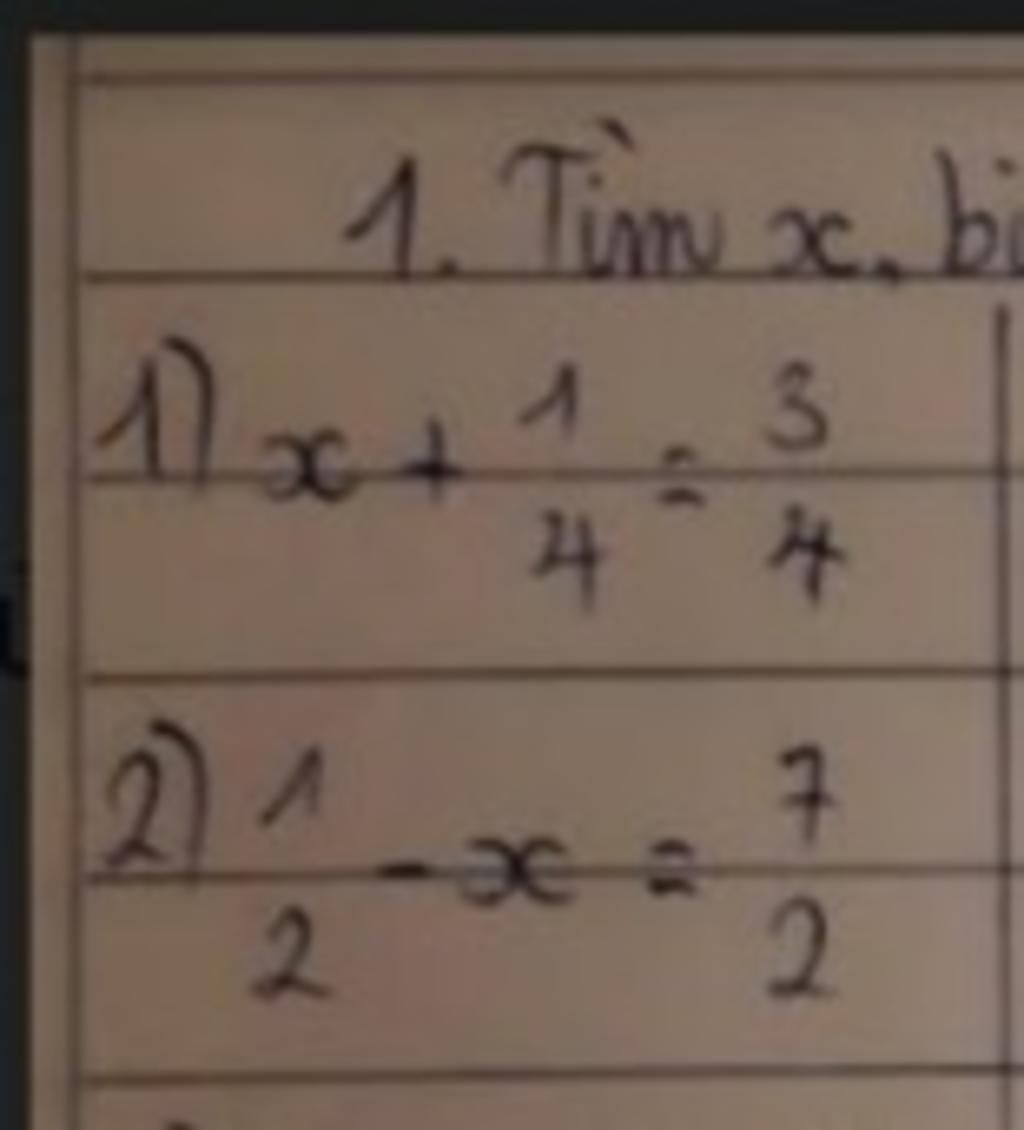 1. Tìm x, bi
1) x + 1/4 = 3/4
2) 1/2 - x = 7/2